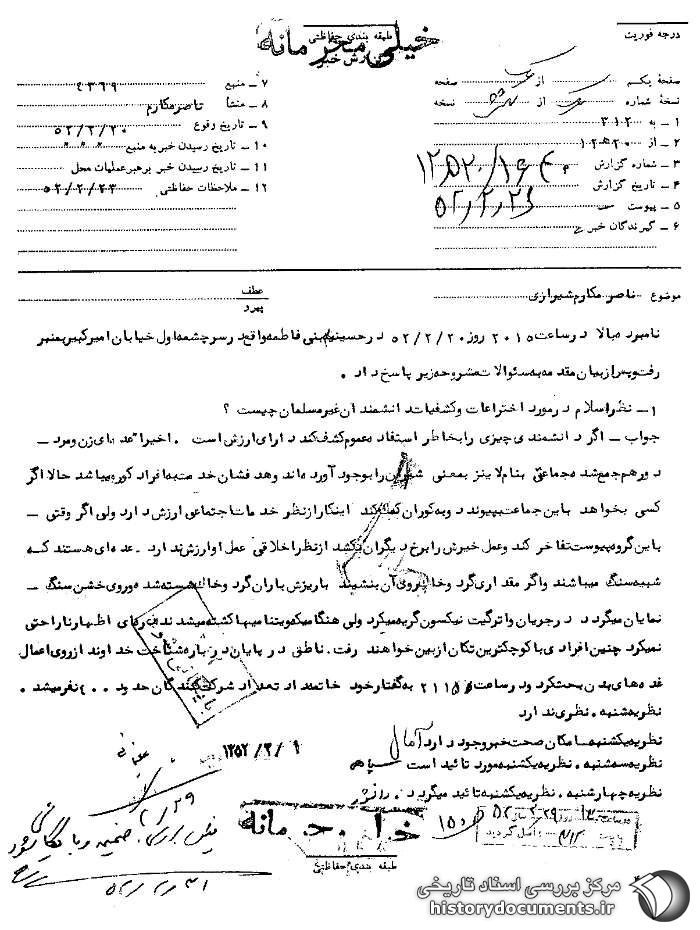 درجه فوریت
طبقه بندی حفاظتی
خیلی محرمانه
گزارش خبر
صفحه یکم از یک صفحه
نسخه شماره از نسخه
۱ – به ۳۱۲
۲ – از ۲۰ هـ ۱۲
۳ – شماره گزارش
۴ – تاریخ گزارش ۵۲/۲/۲۶
۵ – پیوست
۶ – گیرندگان خبر
۷ – منبع ۴۳۶۹
۸ – منشأ ناصر مکارم
۹ – تاریخ وقوع ۵۲/۲/۲۰
۱۰ – تاریخ رسیدن خبر به منبع
۱۱ – تاریخ رسیدن خبر به رهبر عملیات محل
۱۲ – ملاحظات حفاظتی ۵۲/۲/۲۳
موضوع ناصر مکارم شیرازی
عطف
پیرو
نامبرده بالا در ساعت ۲۰۱۵ روز ۵۲/۲/۲۰ در حسینیه بنی فاطمه واقع در سرچشمه اول خیابان امیرکبیر بمنبر
رفت و پس از بیان مقدمه به سئوالات مشروحه زیر پاسخ داد .
۱– نظر اسلام در مورد اختراعات و کشفیات دانشمندان غیر مسلمان چیست ؟
جواب – اگر دانشمندی چیزی را بخاطر استفاده عموم کشف کند دارای ارزش است . اخیرا عده ای زن و مرد –
دور هم جمع شده جماعتی بنام لاینز بمعنی شیران را بوجود آورده اند و هدفشان خدمت به افراد کور میباشد حالا اگر
کسی بخواهد باین جماعت بپیوندد و به کوران کمک کند اینکار از نظر خدمات اجتماعی ارزش دارد ولی اگر وقتی –
باین گروه پیوست تفاخر کند و عمل خیرش را برخ دیگران بکشد از نظر اخلاقی عمل او ارزش ندارد . عده ای هستند که
شبیه سنگ میباشند و اگر مقداری گرد و خاک روی آن بنشیند با ریزش باران گرد و خاک شسته شده و روی خشن سنگ –
نمایان میگردد در جریان واترگیت نیکسون گریه میکرد ولی هنگامیکه ویتنامیها کشته میشدند ذره ای اظهار ناراحتی
نمیکرد چنین افرادی با کوچکترین تکان از بین خواهند رفت . ناطق در پایان درباره شناخت خداوند از روی اعمال
غده های بدن بحث کرد و در ساعت ۲۱۱۵ به گفتار خود خاتمه داد تعداد شرکت کنندگان حدود ۲۰۰ نفر میشد .
نظریه شنبه . نظری ندارد
نظریه یکشنبه . امکان صحت خبر وجود دارد آمال
نظریه سه شنبه . نظریه یکشنبه مورد تائید است سپاهی
نظریه چهارشنبه . نظریه یکشنبه تائید میگردد .
۱۳۵۲/۳/۹
۲/۲۹
۵۲/۲/۳۱
خیلی محرمانه
طبقه بندی حفاظتی
مرکز بررسی اسناد تاریخی
historydocuments.ir